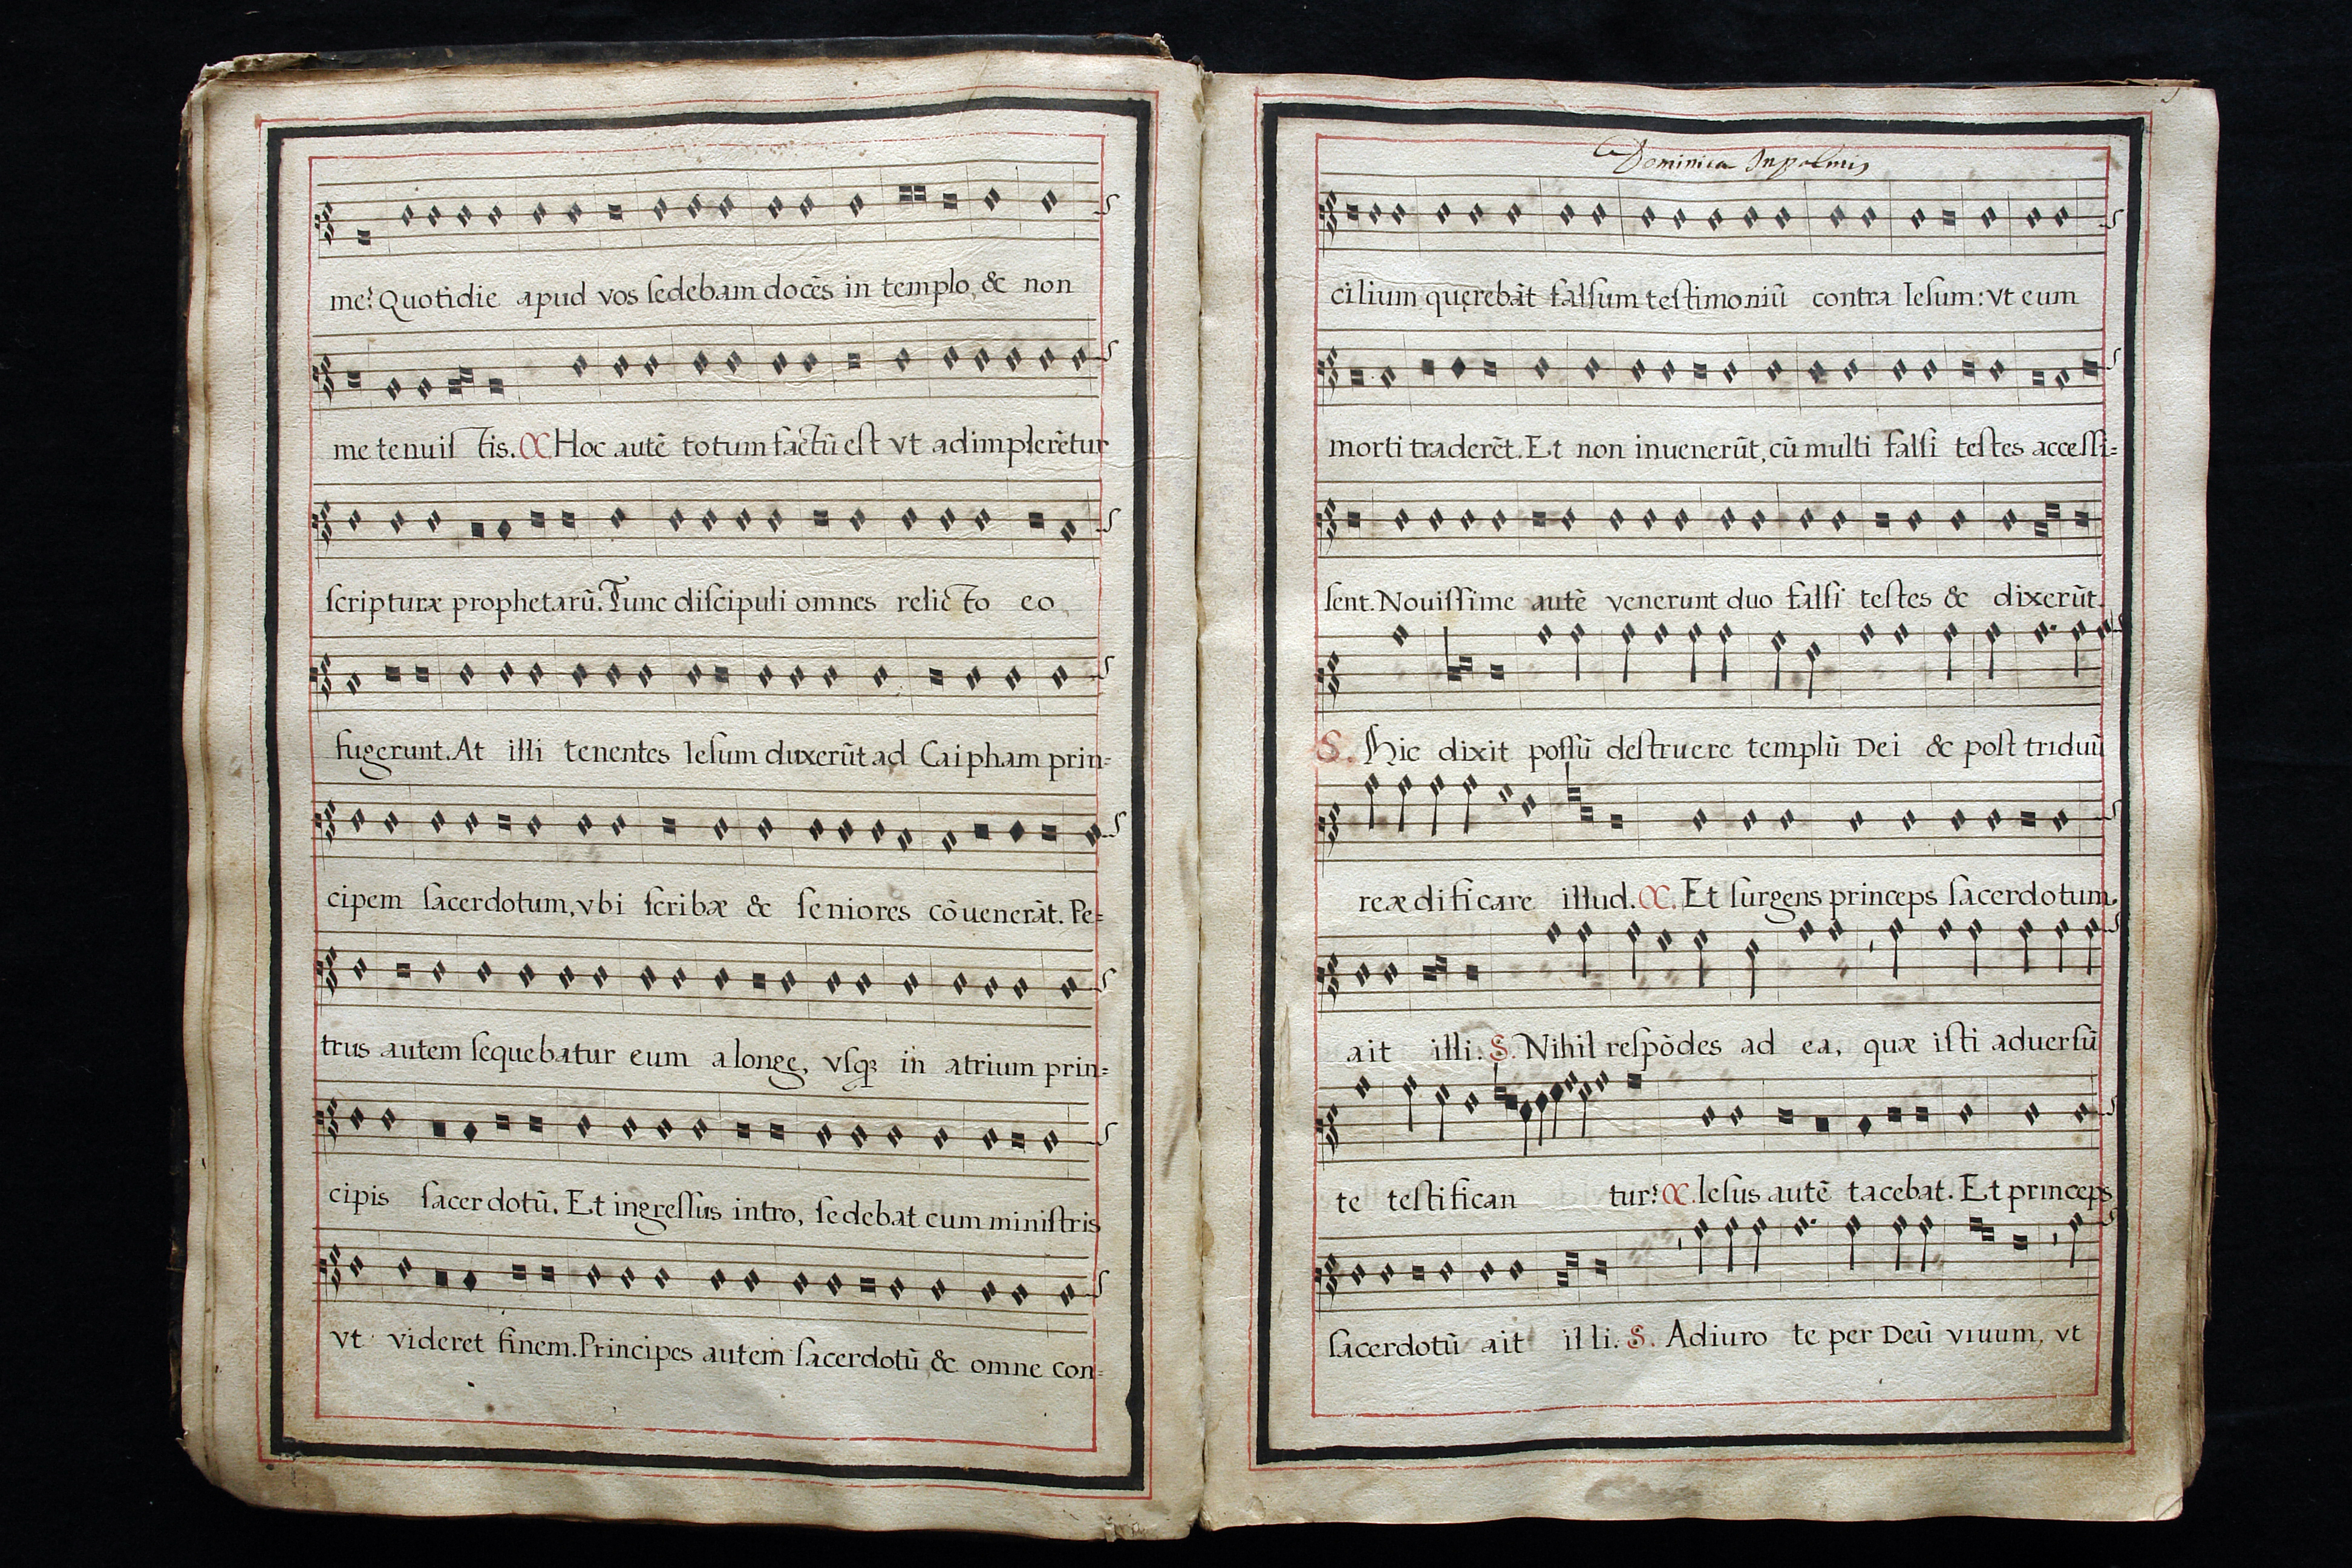 me? Quotidie apud vos ſedebam docẽs in templo, & non
me tenuiſ tis. C. Hoc autẽ totum factũ eſt vt adimplerẽtur
ſcripturæ prophetarũ. Tunc diſcipuli omnes relicto eo,
fugerunt. At illi tenentes Ieſum duxerũt ad Caipham prin=
cipem ſacerdotum, vbi ſcribæ & ſeniores cõuenerãt. Pe=
trus autem ſequebatur eum a longe, vſq; in atrium prin=
cipis ſacerdotũ. Et ingreſſus intro, ſedebat cum miniſtris
vt videret finem. Principes autem ſacerdotũ & omne con=
Dominica In palmis
cilium quęrebãt falſum teſtimoniũ contra Ieſum: vt eum
morti traderẽt. Et non inuenerũt, cũ multi falſi teſtes acceſſi=
ſent. Nouiſſime autẽ venerunt duo falſi teſtes & dixerũt.
S. Hic dixit poſſũ deſtruere templũ Dei & poſt triduũ
reædificare illud. C. Et ſurgens princeps ſacerdotum.
ait illi. S. Nihil reſpõdes ad ea, quæ iſti aduerſũ
te teſtifican tur? C. Ieſus autẽ tacebat. Et princeps
ſacerdotũ ait illi. S. Adiuro te per Deũ viuum, vt